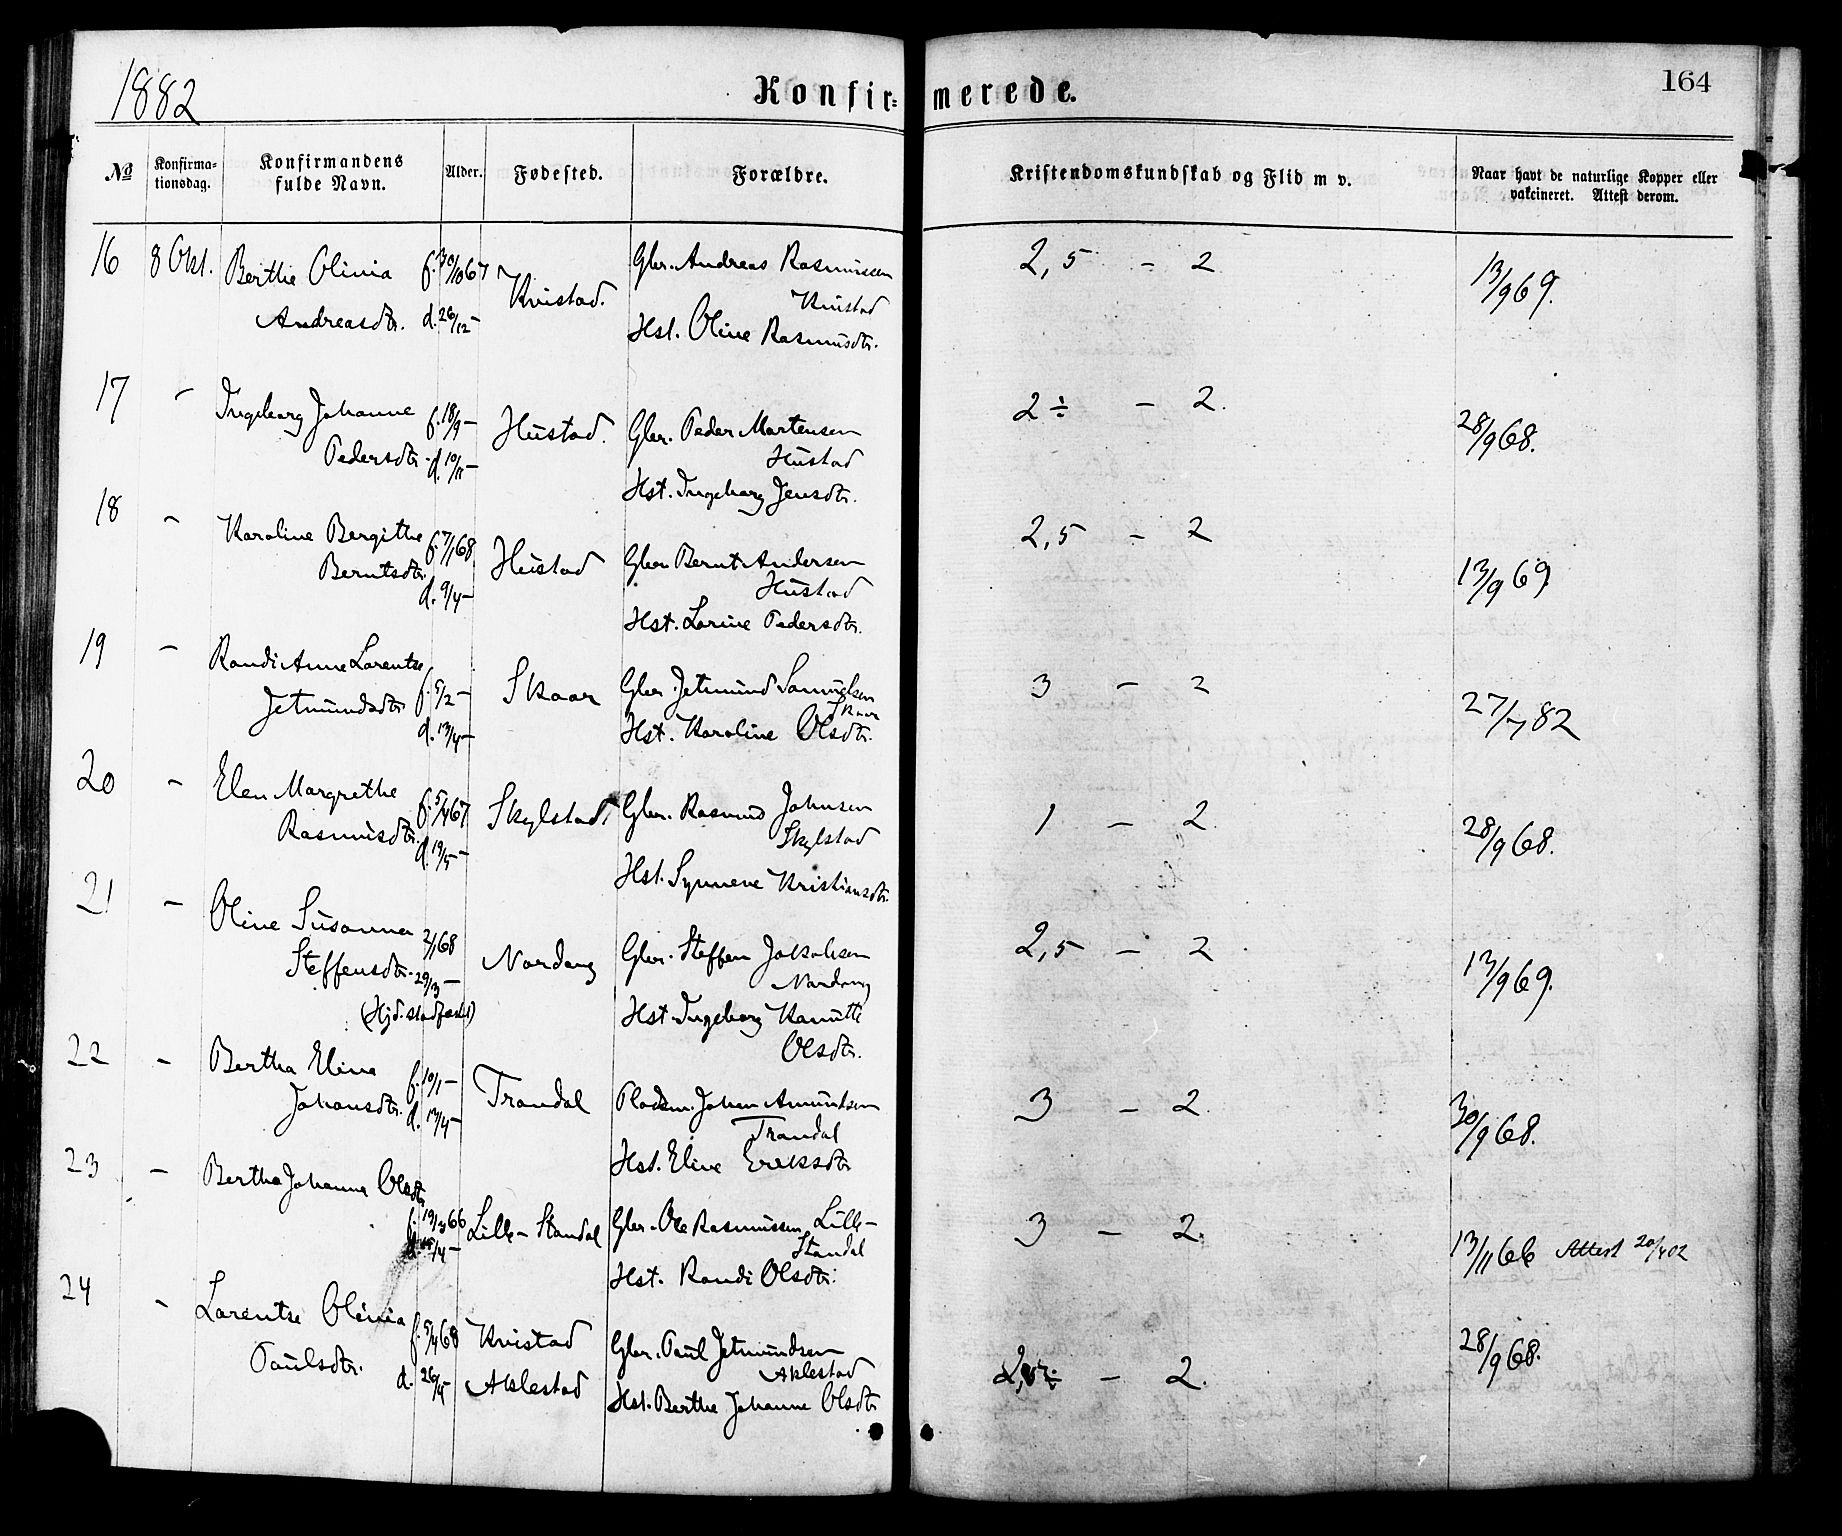 1882
Konfir=merede.
164
No
Konfirma=
tionsdag.
Konfirmandens
fulde Navn.
Alder.
Fødested.
Forældre.
Kristendomskundskab og Flid m v.
Naar havt de naturlige Kopper eller
vakcineret. Attest derom.
16 8 Okt. Berthe Olivia f. 30/10 67 Kvistad. Gbr. Andreas Rasmussen 2,5 - 2 13/9 69.
Kvistad
Andreasdtr. d. 26/12 - Hst. Oline Rasmusdtr.
17 - Ingeborg Johanne f. 18/9 - Hustad. Gbr. Peder Martensen 2 ÷ - 2. 28/9 68.
Hustad
Pedersdtr. d. 10/11 - Hst. Ingeborg Jensdtr.
18 - Karoline Bergithe f. 7/1 68. Hustad Gbr. Bernt Andersen 2,5 - 2 13/9 69
Hustad
Berntsdtr. d. 9/4 - Hst. Lorine Pedersdtr.
19 - Randi Anne Lorentse f. 5/2 - Skaar Gbr. Jetmund Samuelsen 3 - 2 27/7 82
Skaar
Jetmundsdtr d. 13/4 - Hst. Karoline Olsdtr.
20 - Elen Margrethe f. 5/4 67 Skylstad Gbr. Rasmus Johnsen 1 - 2. 28/9 68.
Skylstad
Rasmusdtr. d. 19/5 - Hst. Synneve Kristiansdtr.
21 - Oline Susanna 2/1 68 Nordang Gbr. Steffen Jakobsen 2,5 - 2 13/9 69.
Nordang
Steffensdtr. 29/3 - Hst. Ingeborg Kanutte
(Hjd. stadfæstet) Olsdtr.
22 - Bertha Eline f. 10/1 - Trandal Pladsm. Johan Amundsen 3 - 2. 30/9 68.
Trandal
Johansdtr. d. 13/4 - Hst. Eline Eriksdtr
23 - Bertha Johanna Olsdtr f. 19/3 66 Lille-Standal Gbr. Ole Rasmussen Lille- 3 - 2. 13/11 66 Attest 20/4 02
Standal
d. 15/4 - Hst. Randi Olsdtr.
24 - Lorentse Olivia f. 5/4 68 Kvistad Gbr. Paul Jetmundsen 2 - 2. 28/9 68.
Aklestad
Paulsdtr. d. 26/4 - Aklestad Hst. Berthe Johanne Olsdtr